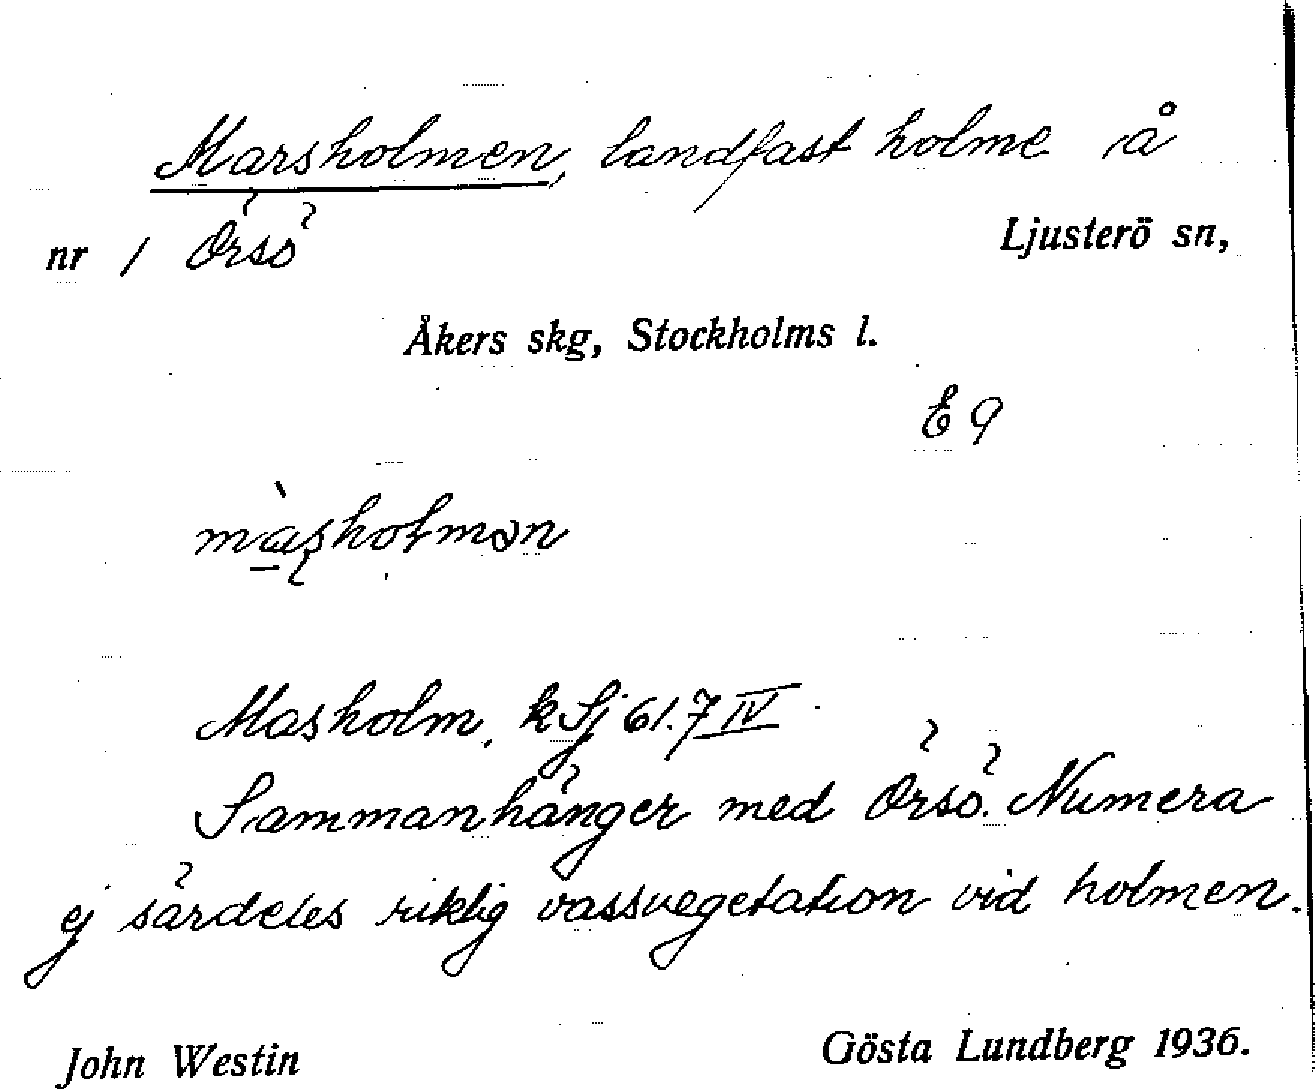 Marsholmen, landfast holme å
nr 1 Örsö Ljusterö sn,
Åkers skg, Stockholms l.
E 9
màsholmən
Masholm, k Lj 61.7 IV
Sammanhänger med Örsö. Numera
ej särdeles riklig vassvegetation vid holmen.
John Westin Gösta Lundberg 1936.